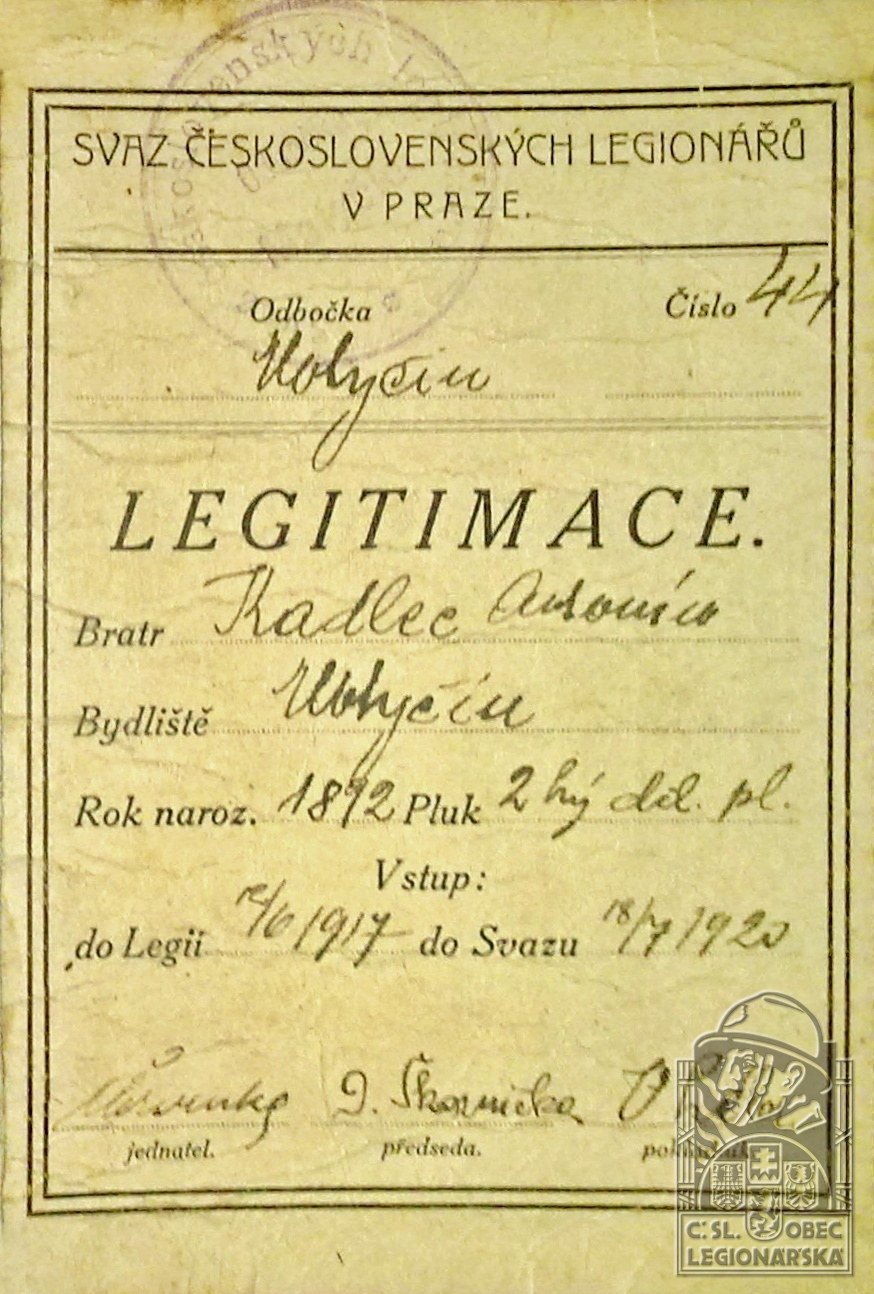 SVAZ ČESKOSLOVENSKÝCH LEGIONÁŘŮ
V PRAZE.
Odbočka Číslo 44
LEGITIMACE.
Bratr Kadlec Antonín
Bydliště
Rok naroz. 1892 Pluk 2hý děl. pl.
Vstup:
do Legií 1917 do Svazu 18/7 1920
jednatel. předseda. pokladník.
Č.SL. OBEC
LEGIONÁŘSKÁ